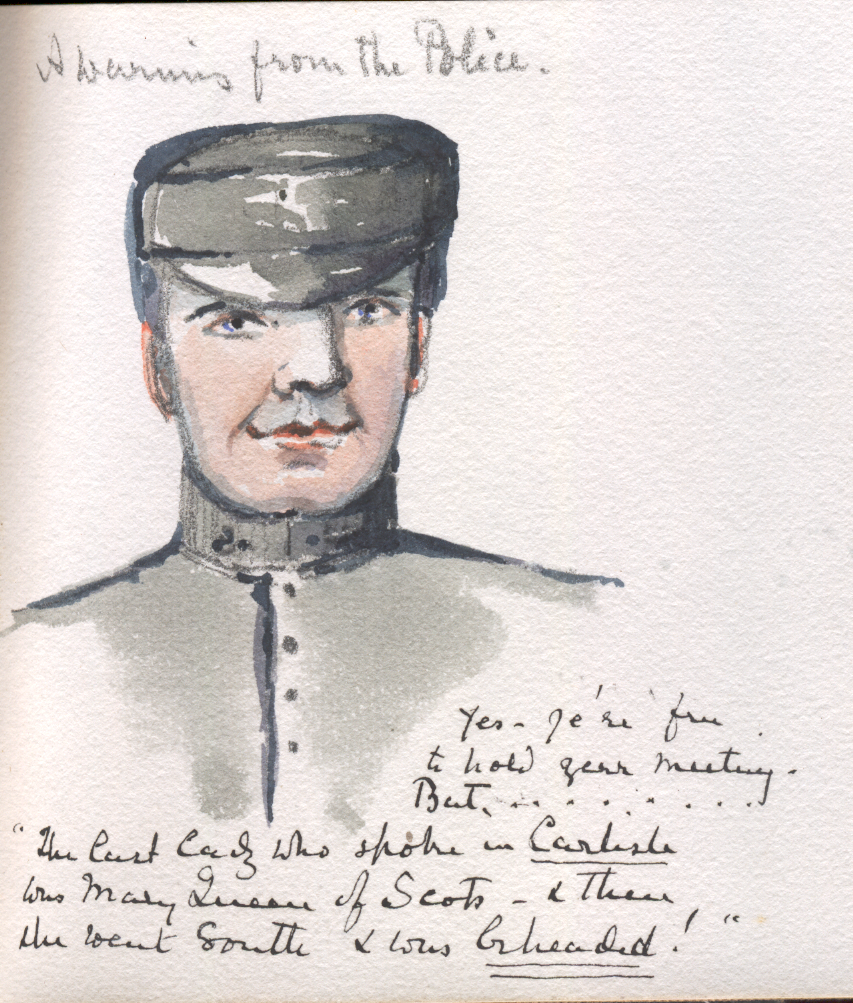 A warning from the Police.
Yes - Ye're free
to hold yeer meeting.
But . . . . . . . . .
"The last Lady who spoke in Carlisle
was Mary Queen of Scots - & then
she went South & was beheaded! "